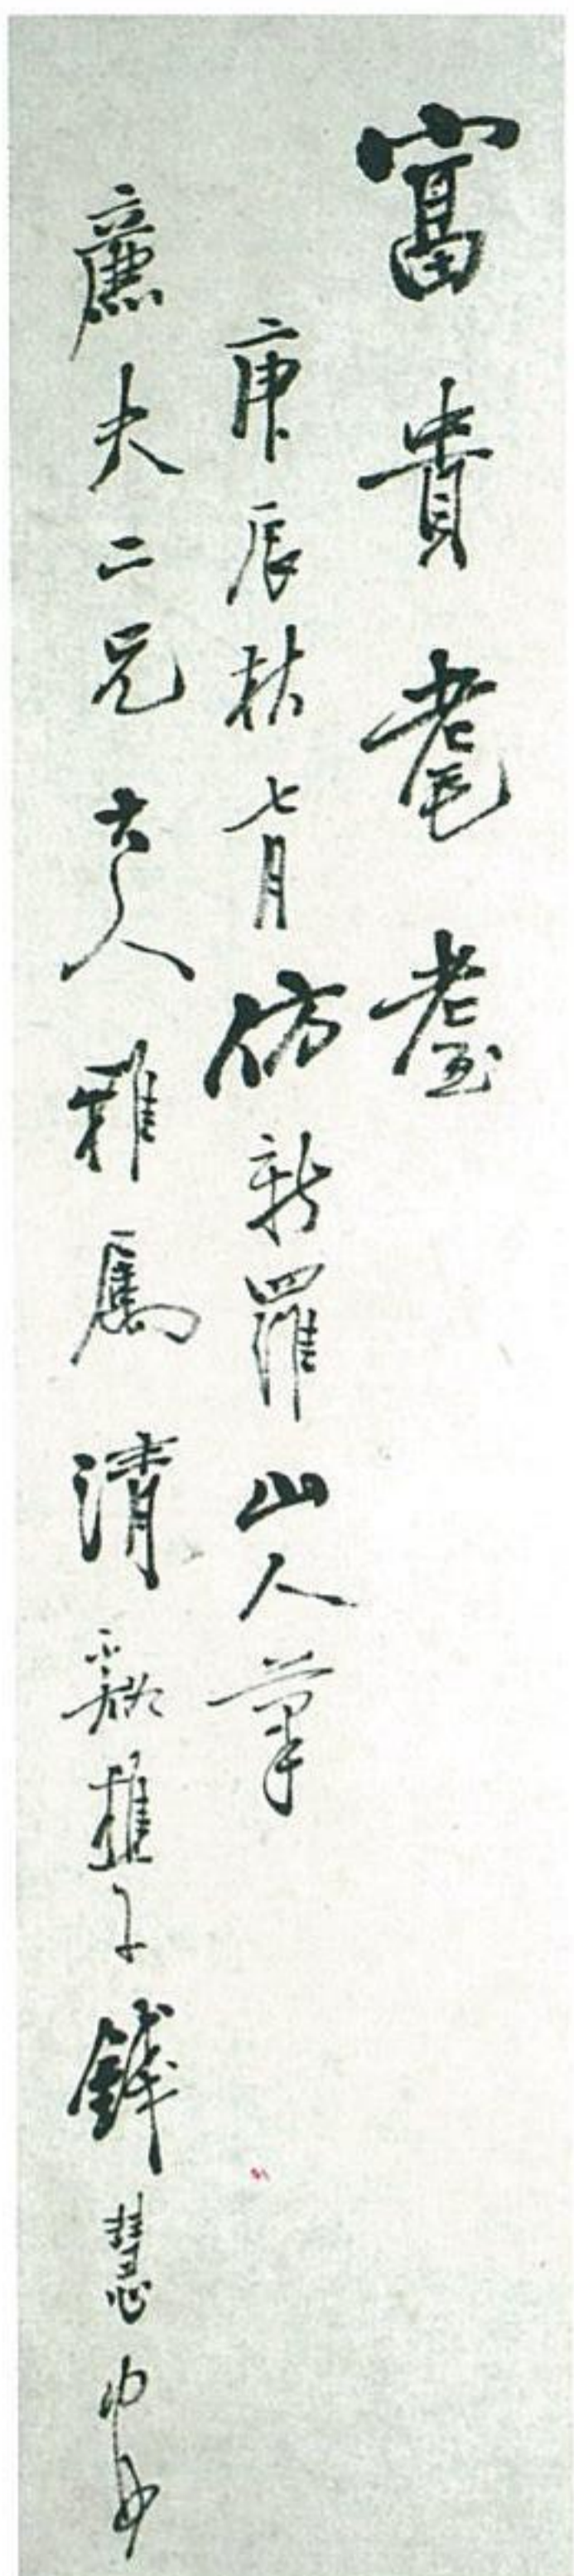 富貴耄耋
庚辰秋七月仿新羅山人筆
廉夫二兄大人雅屬清谿樵子錢慧安